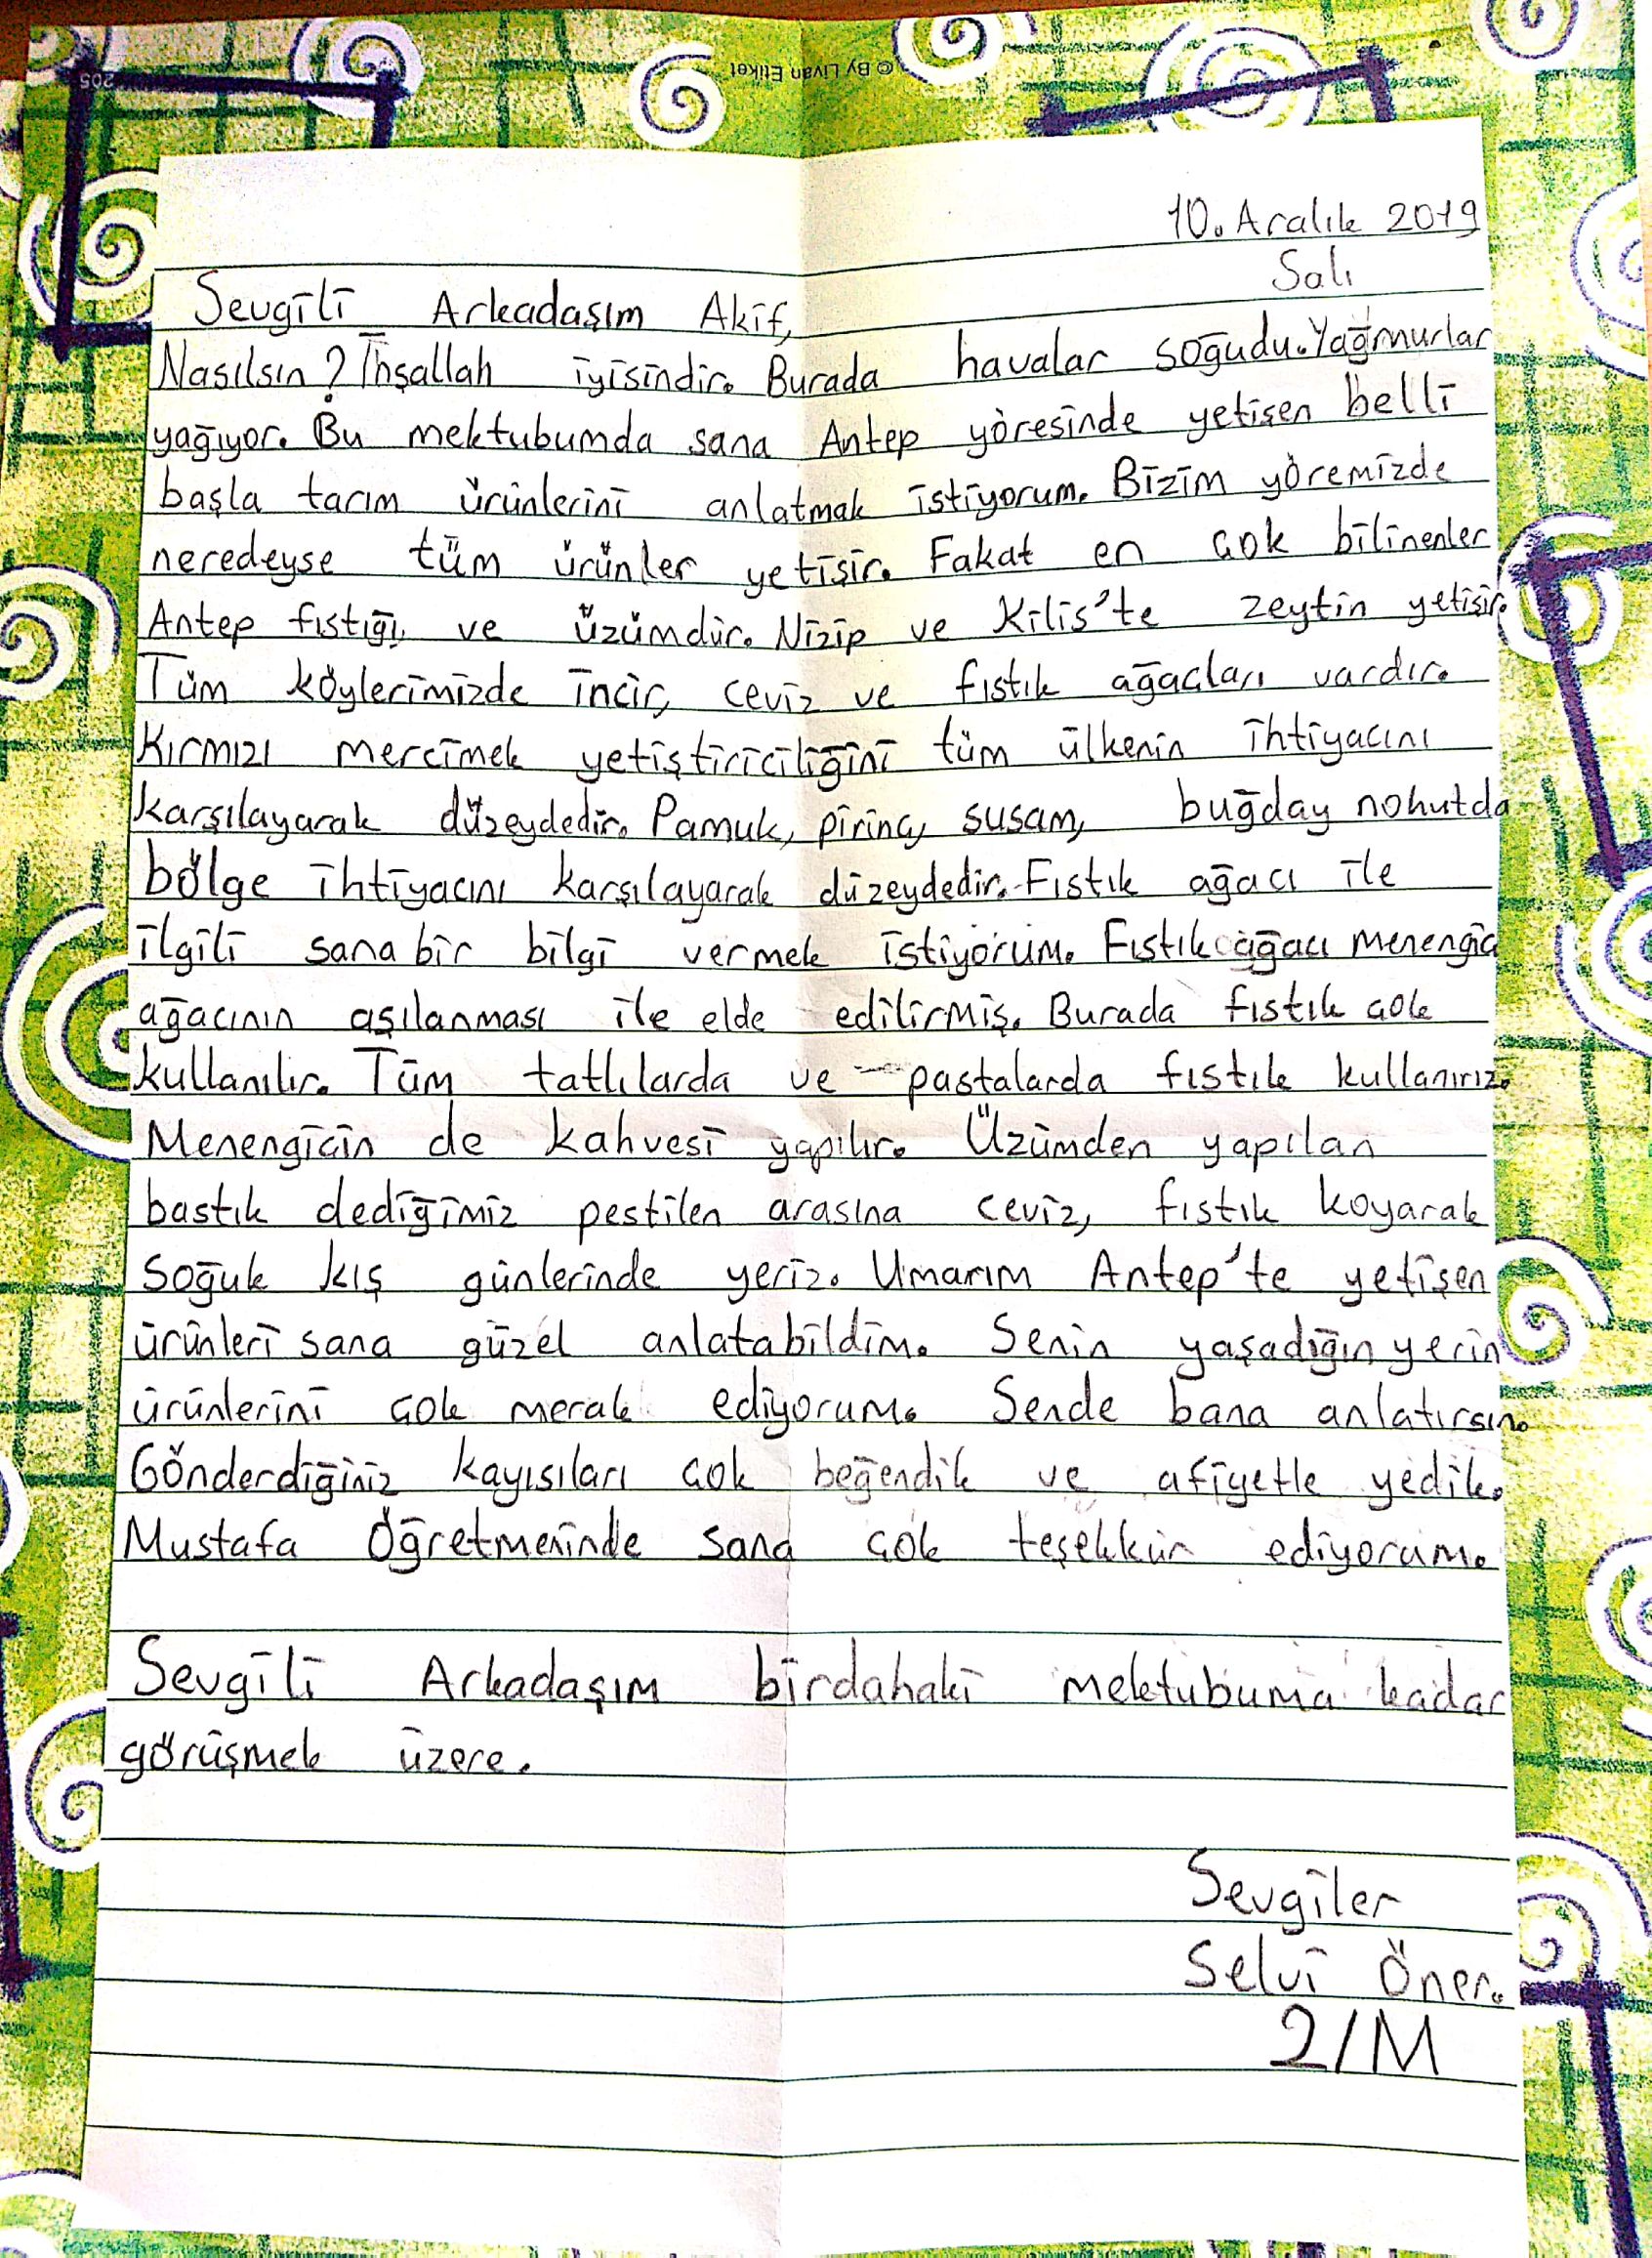 © By Livan Etiket
205
10. Aralık 2019
Salı
Sevgili Arkadaşım Akif,
Nasılsın? İnşallah iyisindir. Burada havalar soğudu. Yağmurlar
yağıyor. Bu mektubumda sana Antep yöresinde yetişen belli
başla tarım ürünlerini anlatmak istiyorum. Bizim yöremizde
neredeyse tüm ürünler yetişir. Fakat en çok bilinenler
Antep fıstığı, ve üzümdür. Nizip ve Kilis'te zeytin yetişir.
Tüm köylerimizde incir, ceviz ve fıstık ağaçları vardır.
Kırmızı mercimek yetiştiriciliğini tüm ülkenin ihtiyacını
karşılayarak düzeydedir. Pamuk, pirinç, susam, buğday nohutda
bölge ihtiyacını karşılayarak düzeydedir. Fıstık ağacı ile
ilgili sana bir bilgi vermek istiyorum. Fıstık ağacı menengiç
ağacının aşılanması ile elde edilirmiş. Burada fıstık çok
kullanılır. Tüm tatlılarda ve pastalarda fıstık kullanırız.
Menengiçin de kahvesi yapılır. Üzümden yapılan
bastık dediğimiz pestilen arasına ceviz, fıstık koyarak
soğuk kış günlerinde yeriz. Umarım Antep'te yetişen
ürünleri sana güzel anlatabildim. Senin yaşadığın yerin
ürünlerini çok merak ediyorum. Sende bana anlatırsın.
Gönderdiğiniz kayısıları çok beğendik ve afiyetle yedik.
Mustafa Öğretmeninde sana çok teşekkür ediyorum.
Sevgili Arkadaşım birdahaki mektubuma kadar
görüşmek üzere.
Sevgiler
Selvi Öner.
2/M